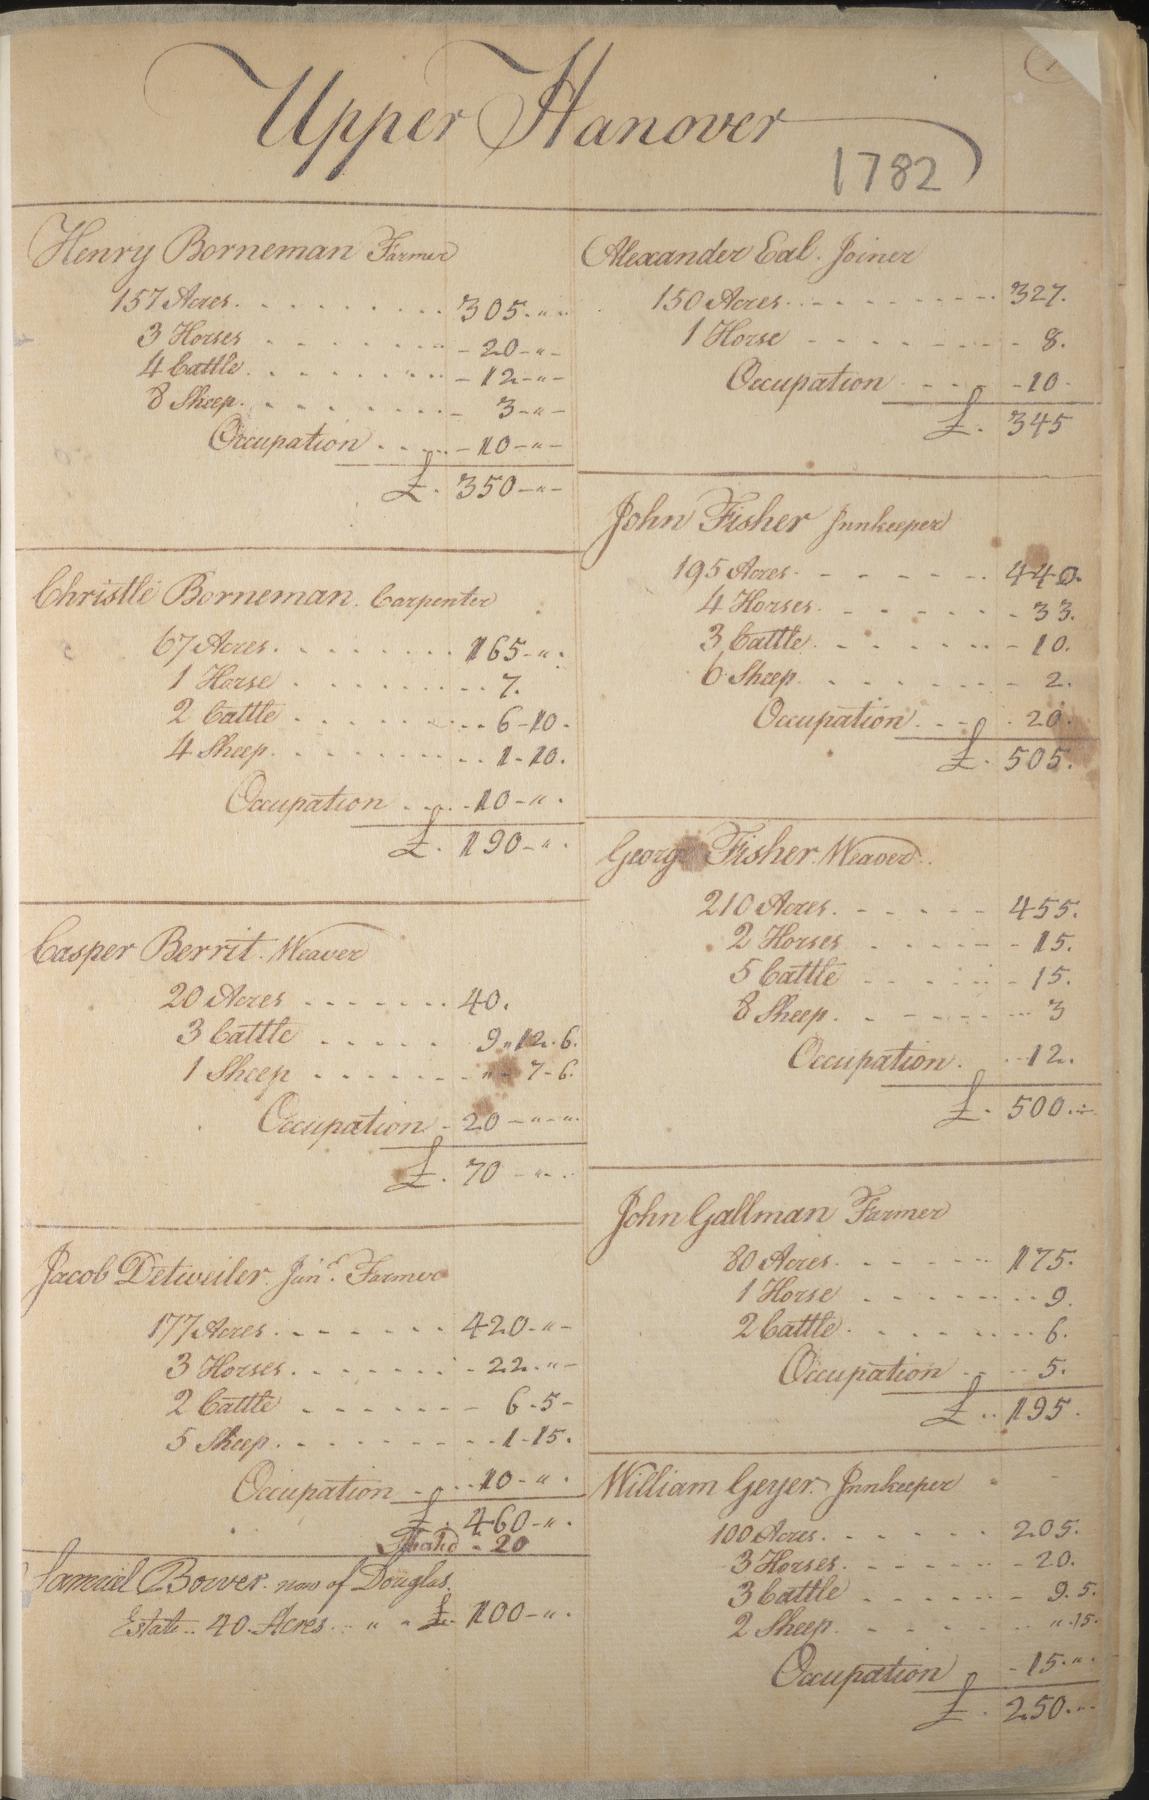 Upper Hanover
1782
Henry Borneman Farmer
157 Acres. . . . . . . . . 305-"-
3 Horses . . . . . . . - 20-"-
4 Cattle . . . . . . . - 12-"-
8 Sheep. . . . . . . . - 3-"-
Occupation . . . . - 10-"-
£. 350-"-
Christle Borneman. Carpenter
67 Acres. . . . . . . . . 165-".
1 Horse . . . . . . . . . 7.
2 Cattle . . . . . . . . 6-10.
4 Sheep. . . . . . . . . 1-10.
Occupation . . . . -10-".
£. 190-".
Casper Berrit. Weaver
20 Acres . . . . . . . 40.
3 Cattle . . . . . 9"12.6.
1 Sheep . . . . . . . "- 7-6.
Occupation - 20-"-".
£. 70-".
Jacob Detweiler. Junr. Farmer
177 Acres. . . . . . . 420-"-
3 Horses. . . . . . . - 22-"-
2 Cattle . . . . . . - 6-5-
5 Sheep. . . . . . . . 1-15.
Occupation . . . 10-".
£. 460-".
- 20
Samuel Bower. now of Douglas.
Estate.. 40. Acres. . " " £. 100-".
Alexander Eal. Joiner
150 Acres. . . . . . . . . 327.
1 Horse . . . . . . . . 8.
Occupation . . . -10.
£. 345
John Fisher Innkeeper
195 Acres. . . . . . . . 440.
4 Horses. . . . . . . - 33.
3 Cattle. . . . . . . - 10.
6 Sheep. . . . . . . . - 2.
Occupation. . . . . 20.
£. 505.
George Fisher. Weaver.
210 Acres. . . . . . 455.
2 Horses . . . . . . - 15.
5 Cattle . . . . . . - 15.
8 Sheep. . . . . . . . 3
Occupation. . . -12.
£. 500.
John Gallman Farmer
80 Acres. . . . . . . 175.
1 Horse . . . . . . . . 9.
2 Cattle. . . . . . . . 6.
Occupation . . . . 5.
£. .. 195.
William Geyer. Innkeeper
100 Acres. . . . . . . 205.
3 Horses. . . . . . - 20.
3 Cattle . . . . . . - 9.5.
2 Sheep. . . . . . . . ".15.
Occupation - 15.".
£. 250.